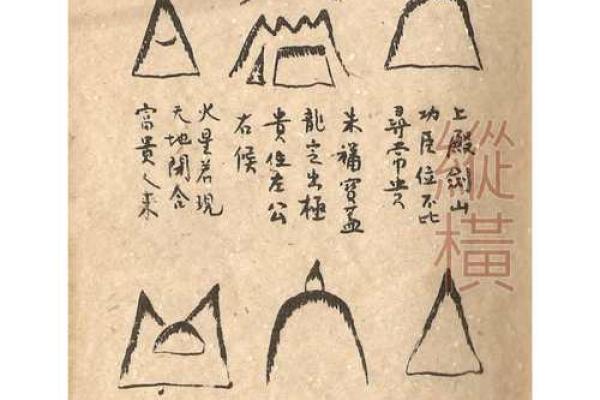 上殿劍山
功臣位不比
尋常貴
朱寶盖
龍定出極
貴位左公
右候
火星若現
天地閉合
富貴來
縱橫